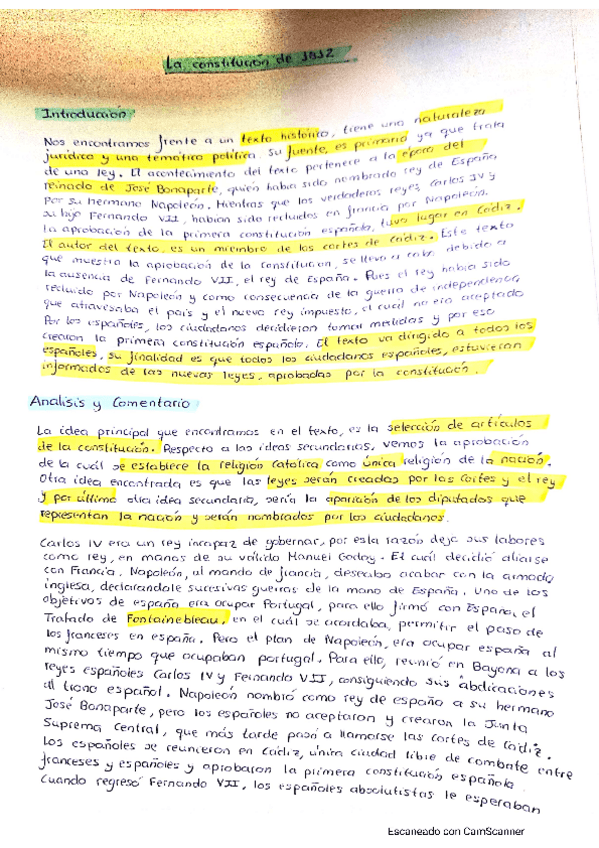 La constitución de 1812
Introducción
Nos encontramos frente a un texto histórico, tiene una naturaleza
jurídica y una temática política. Su fuente, es primaria ya que trata
de una ley. El acontecimiento del texto pertenece a la época del
reinado de José Bonaparte, quien había sido nombrado rey de España
por su hermano Napoleón. Mientras que los verdaderos reyes, Carlos IV y
su hijo Fernando VII, habían sido recluidos en francia por Napoleón.
la aprobación de la primera constitución española, tuvo lugar en Cádiz.
El autor del texto, es un miembro de las cortes de Cádiz. Este texto
que muestra la aprobación de la constitución, se llevo a cabo debido a
la ausencia de Fernando VII, el rey de España. Pues el rey había sido
recluido por Napoleón y como consecuencia de la guerra de independencia
que atravesaba el país y el nuevo rey impuesto, el cuál no era aceptado
Por los españoles, los ciudadanos decidieron tomar medidas y por eso
crearon la primera constitución española. El texto va dirigido a todos los
españoles, su finalidad es que todos los ciudadanos españoles, estuvieran
informados de las nuevas leyes, aprobadas por la constitución.
Analisis y Comentario
La idea principal que encontramos en el texto, es la selección de artículos
de la constitución. Respecto a las ideas secundarias, vemos la aprobación
de la cuál se establece la religión católica como única religion de la nación.
Otra idea encontrada es que las leyes serán creadas por las cortes y el rey
y por último otra idea secundaria, sería la aparición de los diputados que
representan la nación y serán nombrados por los ciudadanos.
Carlos IV era un rey incapaz de gobernar, por esta razón deja sus labores
como rey, en manos de su válido Manuel Godoy. El cuál decidió aliarse
con Francia. Napoleón, al mando de francia, deseaba acabar con la armada
inglesa, declarandole sucesivas guerras de la mano de España. Uno de los
objetivos de españa era ocupar Portugal, para ello firmó con España, el
Tratado de Fontainebleau, en el cuál se acordaba, permitir el paso de
los franceses en españa. Pero el plan de Napoleón, era ocupar españa al
mismo tiempo que ocupaban portugal. Para ello, reunió en Bayona a los
reyes españoles Carlos IV y Fernando VII, consiguiendo sus abdicaciones
al trono español. Napoleón nombró como rey de españa a su hermano
José Bonaparte, pero los españoles no aceptaron y crearon la Junta
Suprema Central, que más tarde pasó a llamarse las cortes de cádiz.
Los españoles se reunieron en Cádiz, única ciudad libre de combate entre
franceses y españoles y aprobaron la primera constitución española.
Cuando regresó Fernando VII, los españoles absolutistas le esperaban
Escaneado con CamScanner